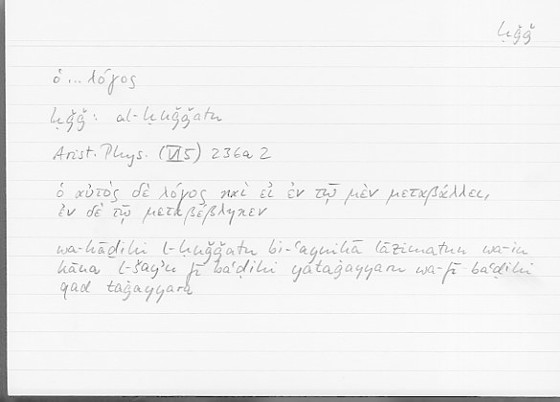 ḥǧǧ
ὁ ... λόγος
ḥǧǧ: al-ḥuǧǧatu
Arist. Phys. (VI 5) 236a 2
ὁ αὐτὸς δὲ λόγος καὶ εἰ ἐν τῷ μὲν μεταβάλλει,
ἐν δὲ τῷ μεταβέβληκεν
wa-hāḏihi l-ḥuǧǧatu bi-ʿaynihā lāzimatun wa-in
kāna l-šayʾu fī baʿḍihi yataġayyaru wa-fī baʿḍihi
qad taġayyara